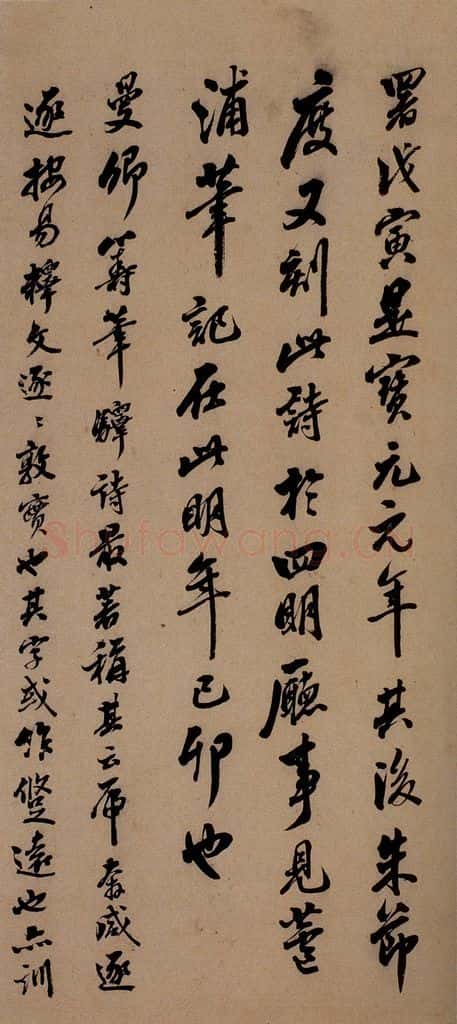 署戊寅是寶元元年其後朱節
度又刻此詩於四明廳事見蘆
浦筆記在此明年己卯也
曼卿籌筆驛詩最著稱其云帝奔咸逐
逐按易釋文逐〻敦實也其字或作遠也亦訓
Shufawang.CN